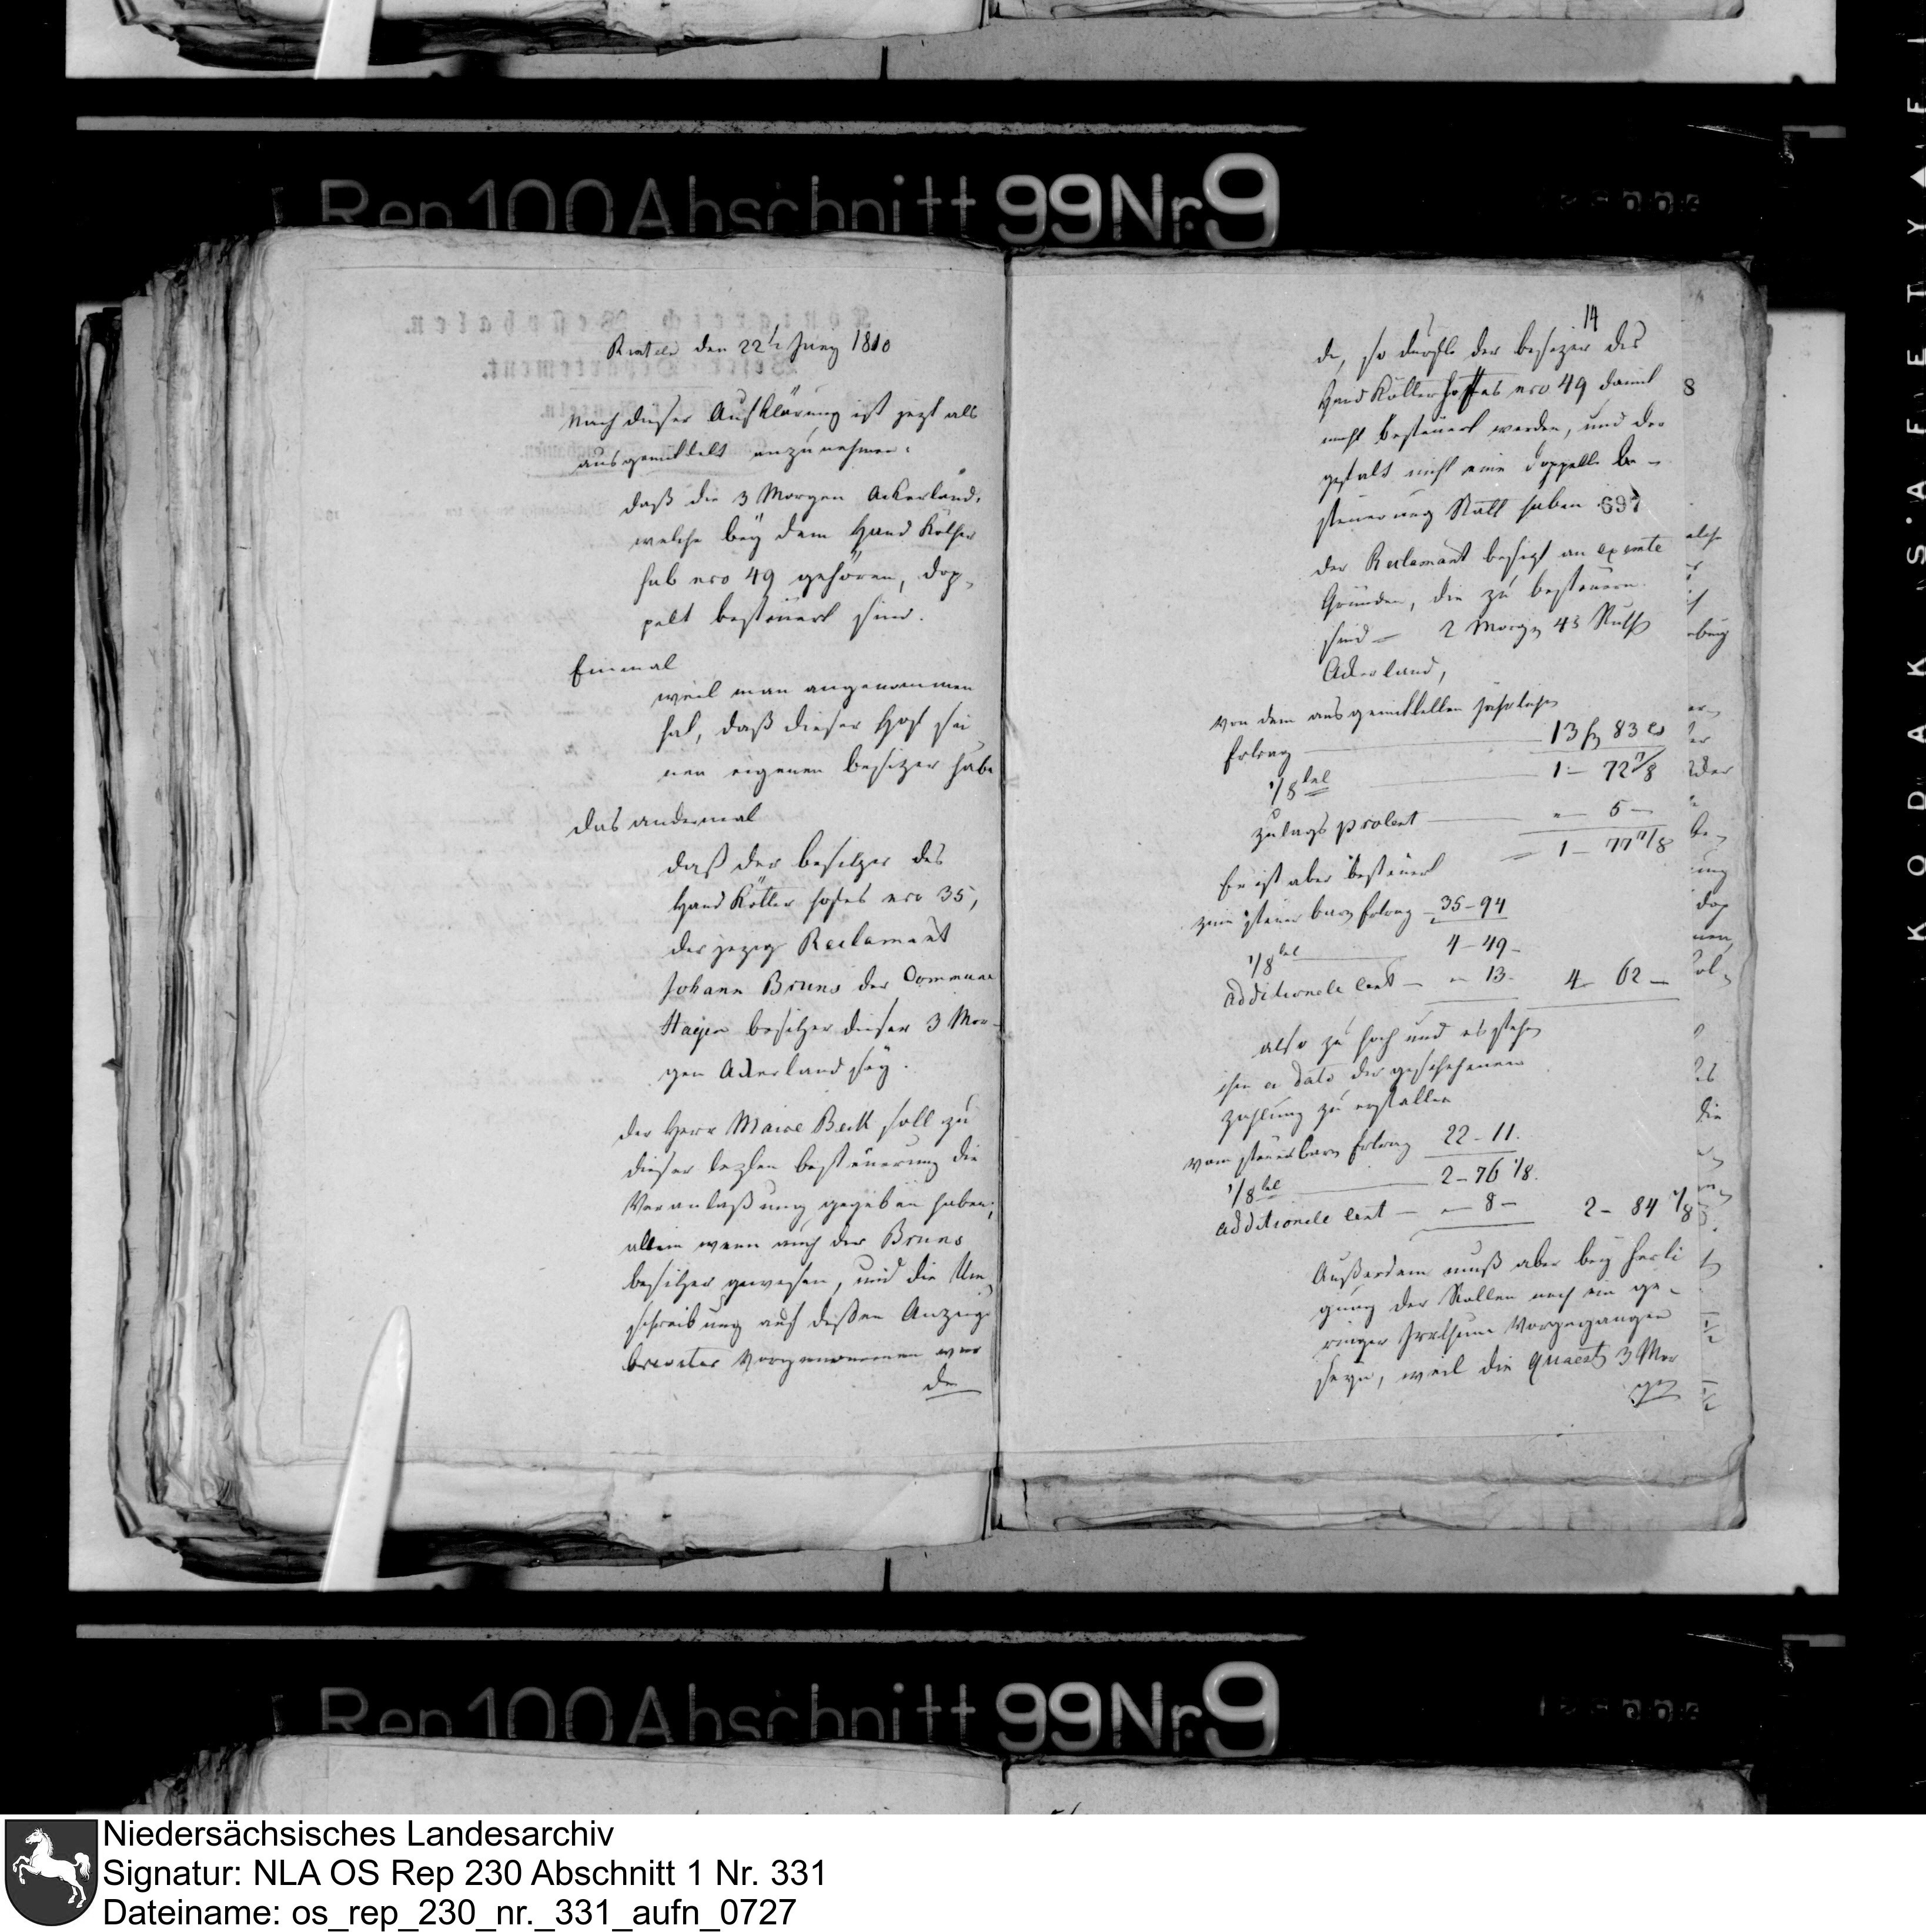 Rep 100 Abschnitt 99 Nr 9
Rinteln den 22t Juny 1810
Nach dieser Aufklärung ist jezt als
ausgemittelt anzunehmen:
daß die 3 Morgen Ackerland,
welche bey dem Hand Köther
sub nro 49 gehören, dop-
pelt besteuert sind.
Einmal
weil man angenommen
hat, daß dieser Hof sei
nen eigenen Besitzer habe
das andermal
daß der Besitzer des
Hand Kötter hofes nro 35,
der jezige Reclamant
Johann Bruns der Commune
Hagen Besitzer dieser 3 Mor-
gen Ackerland sey.
der Herr Maire Beck soll zu
dieser lezten Besteuerung die
Veranlaßung gegeben haben;
allein wenn auch der Bruns
Besitzer gewesen, und die Um-
schreibung auf deßen Anzeige
breviter vorgenommen wor
de
14
de, so durfte der Besizer des
Hand Kötterhoffes nro 49 damit
nicht besteuert werden, und der
gestalt nicht eine doppelte Be-
steuerung Statt haben
697
der Reclamant besizt an exemte
Gründen, die zu besteuern
sind – 2 Morgen 43 Ruth
Ackerland,
von dem ausgemittelten jährlichen
Ertrag 13 f 83 cs
1/8tel 1 – 72 7/8
Zulags Procent " 5 –
1 – 77 7/8
Er ist aber besteuert
zum steuerbaren Ertrag 35 – 94
1/8tel 4 – 49 –
additionele Cent – " 13 – 4 – 62 –
also zu hoch und es stehen
ihm a dato der geschehenen
Zahlung zu erstatten
vom steuerbaren Ertrag 22 – 11.
1/8tel 2 – 76 1/8.
additionele Cent – " 8 – 2 – 84 1/8
Außerdem muß aber bey Ferti
gung der Rollen noch ein ge-
ringer Irrthum vorgegangen
seyn, weil die quaest 3 Mor
gen
8
Rep 100 Abschnitt 99 Nr 9
KODAK SAFETY
Niedersächsisches Landesarchiv
Signatur: NLA OS Rep 230 Abschnitt 1 Nr. 331
Dateiname: os_rep_230_nr._331_aufn_0727